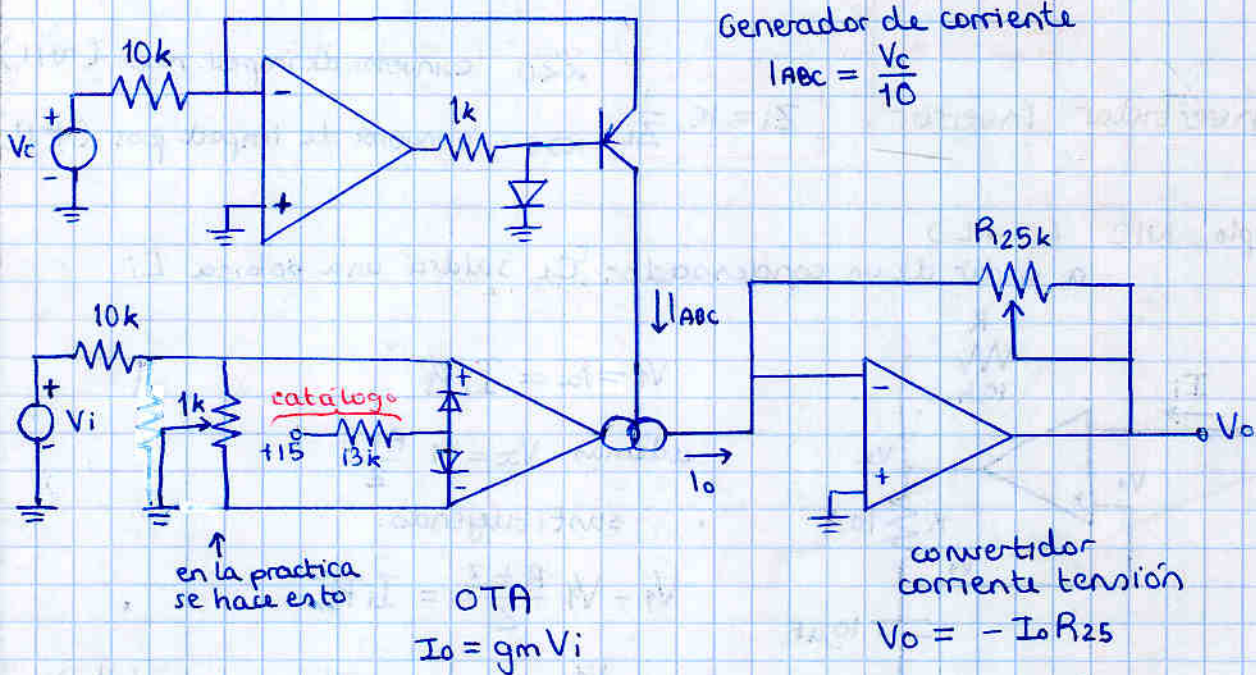 Generador de corriente
IABC = Vc/10
10k
-
+
1k
+
Vc
-
R25k
IABC
10k
+
Vi
-
1k
catálogo
+15
13k
+
-
Io
-
+
Vo
en la practica
se hace esto
OTA
Io = gm Vi
convertidor
corriente tensión
Vo = - Io R25